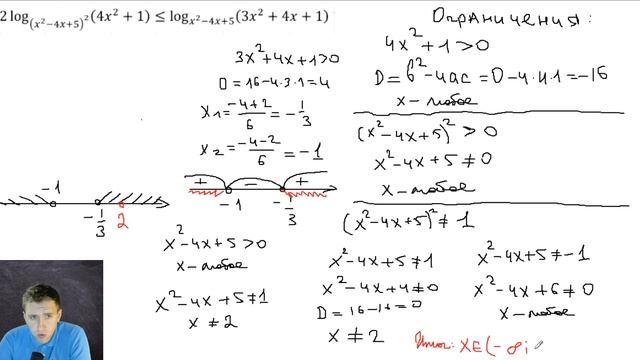 2 log_{(x²-4x+5)²}(4x² + 1) ≤ log_{x²-4x+5}(3x² + 4x + 1)
Ограничения:
4x²+1>0
D=b²-4ac=0-4·4·1=-16
x-любое
(x²-4x+5)²>0
x²-4x+5≠0
x-любое
(x²-4x+5)²≠1
x²-4x+5≠1
x²-4x+4≠0
D=16-16=0
x≠2
x²-4x+5≠-1
x²-4x+6≠0
x-любое
3x²+4x+1>0
D=16-4·3·1=4
x1=(-4+2)/6=-1/3
x2=(-4-2)/6=-1
+ - +
-1 -1/3
-1 -1/3 2
x²-4x+5>0
x-любое
x²-4x+5≠1
x≠2
Итог: x∈(-∞;